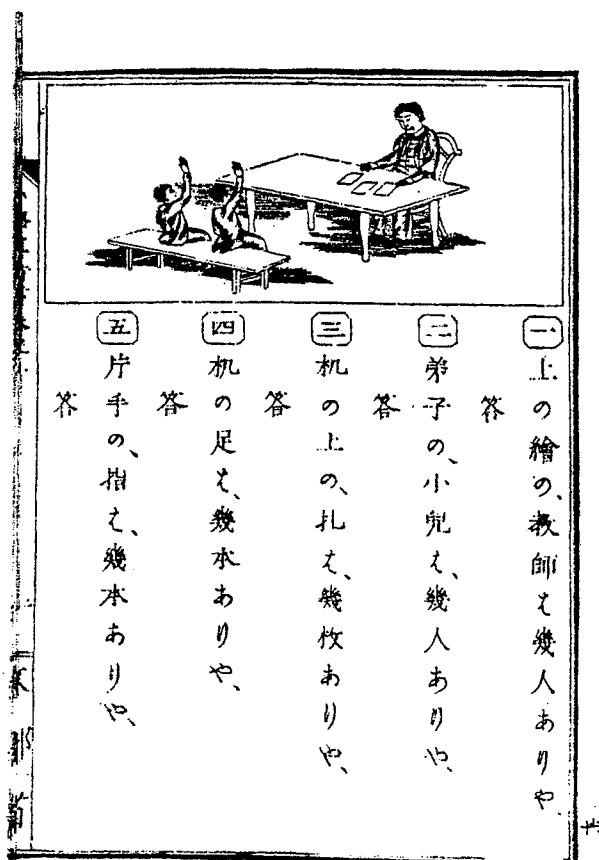 一 上の繪の、教師は幾人ありや、
答
二 弟子の、小兒は、幾人ありや、
答
三 机の上の、札は、幾枚ありや、
答
四 机の足は、幾本ありや、
答
五 片手の、指は、幾本ありや、
答